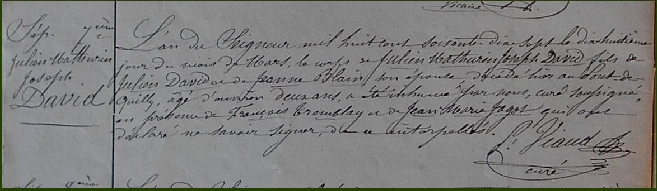 Sép. 
Julien Mathurin
Joseph
David
L'an du Seigneur mil huit cent soixante-dix sept le dixhuitième
jour du mois de Mars, le corps de Julien Mathurin Joseph David fils de
Julien David et de Jeanne Blain son épouse décédé hier au bout de
âgé d'environ deux ans, a été inhumé par nous, curé soussigné
en présence de François Tremblay et de Jean Marie Jagot qui ont
déclaré ne savoir signer, de ce interpellés.
Viaud
curé